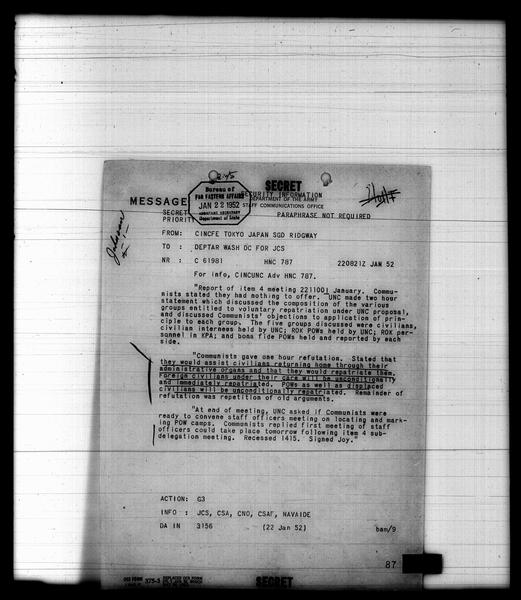 SECRET
SECURITY INFORMATION
DEPARTMENT OF THE ARMY
STAFF COMMUNICATIONS OFFICE
MESSAGE
Bureau of
FAR EASTERN AFFAIRS
JAN 22 1952
ASSISTANT SECRETARY
Department of State
SECRET
PRIORITY
PARAPHRASE NOT REQUIRED
Johnson
FROM: CINCFE TOKYO JAPAN SGD RIDGWAY
TO : DEPTAR WASH DC FOR JCS
NR : C 61981 HNC 787 220821Z JAN 52
For info, CINCUNC Adv HNC 787.
"Report of item 4 meeting 221100I January. Commu-
nists stated they had nothing to offer. UNC made two hour
statement which discussed the composition of the various
groups entitled to voluntary repatriation under UNC proposal,
and discussed Communists' objections to application of prin-
ciple to each group. The five groups discussed were civilians,
civilian internees held by UNC; ROK POWs held by UNC; ROK per-
sonnel in KPA; and bona fide POWs held and reported by each
side.
"Communists gave one hour refutation. Stated that
they would assist civilians returning home through their
administrative organs and that they would repatriate them.
Foreign civilians under their care will be unconditionally
and immediately repatriated. POWs as well as displaced
civilians will be unconditionally repatriated. Remainder of
refutation was repetition of old arguments.
"At end of meeting, UNC asked if Communists were
ready to convene staff officers meeting on locating and mark-
ing POW camps. Communists replied first meeting of staff
officers could take place tomorrow following item 4 sub-
delegation meeting. Recessed 1415. Signed Joy."
ACTION: G3
INFO : JCS, CSA, CNO, CSAF, NAVAIDE
DA IN 3156 (22 Jan 52) bam/9
87
OCS FORM 375-3
SECRET